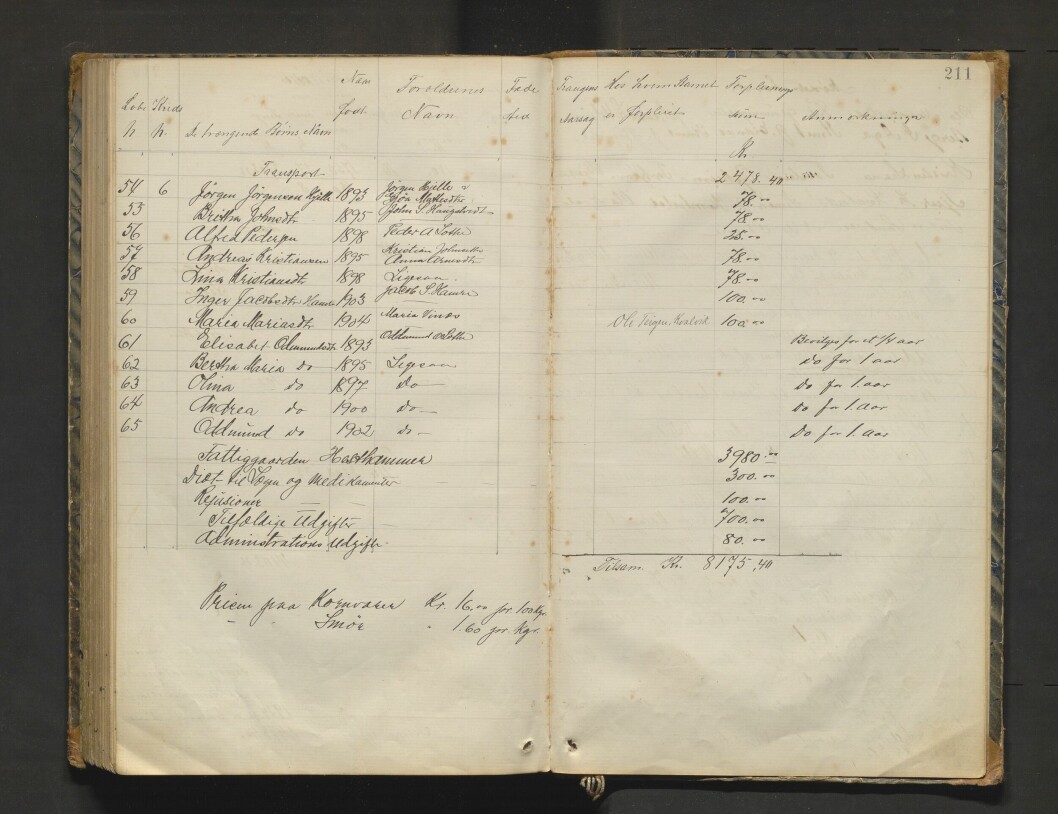 211
Løbe Kreds De trængende Børns Navn Naar født Forældrenes Navn Føde sted Trangens Aarsag Hos hvem Barnet er forpleiet Forpleinings sum Anmærkninger
N. N. Kr.
Transport 2478.40
54 6 Jørgen Jørgensen Kjelle 1893 Jørgen Kjelle 78.00
55 Britha Johnsdt 1895 John S. Haugstvedt 78.00
56 Alfred Pedersen 1898 Peder A Lothe 25.00
57 Andreas Kristiansen 1895 Kristian Anna 78.00
58 Lina Kristiansdt 1898 Ligesaa 78.00
59 Inger Jacobsdtr Hamre 1903 Jacob S. Hamre 100.00
60 Maria Mariasdtr 1904 Maria Vines Ole 100.00
61 Elisabet Odmundsdt 1893 Oddmund Lothe Bevilges for et 1/4 aar
62 Bertha Maria do 1895 Ligesaa Do for 1 aar
63 Olina do 1897 Do Do for 1. aar
64 Andrea do 1900 do Do for 1. Aar
65 Oddmund do 1902 do Do for 1. Aar
Fattiggaarden Hesthammer 3980.00
Diæt til Tilsyn og Medikamenter 300.00
Refusioner 100.00
Tilfældige Udgifter 700.00
Administrations Udgifter 80.00
Tilsam. Kr. 8175.40
Prisen paa Kornvarer Kr. 16.00 pr. 100 Kgr
" " Smør " 1.60 pr. Kgr.